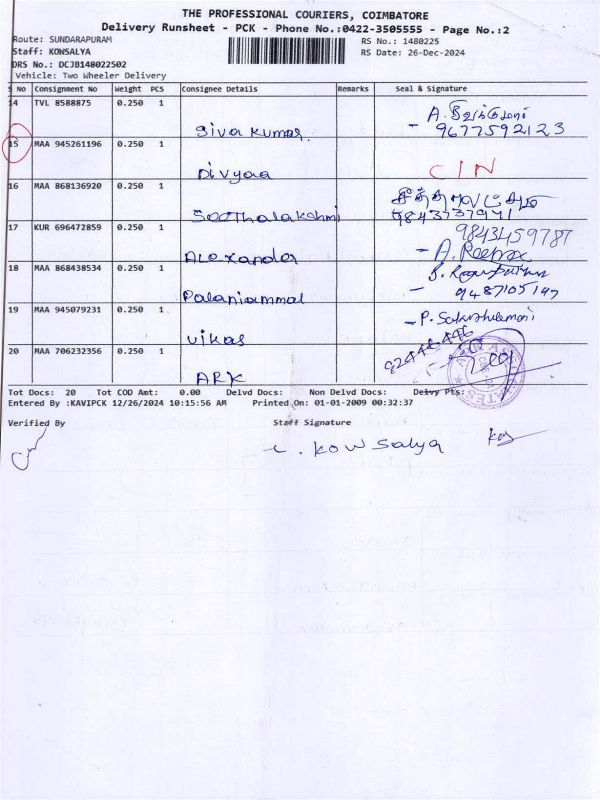 THE PROFESSIONAL COURIERS, COIMBATORE
Delivery Runsheet - PCK - Phone No.:0422-3505555 - Page No.:2
Route: SUNDARAPURAM RS No.: 1480225
Staff: KOWSALYA RS Date: 26-Dec-2024
DRS No.: DCJB148022502
Vehicle: Two Wheeler Delivery
S No Consignment No Weight PCS Consignee Details Remarks Seal & Signature
14 TVL 8588875 0.250 1
Siva kumar 9677592123
15 MAA 945261196 0.250 1
Divyaa CIN
16 MAA 868136920 0.250 1
Seethalakshmi 9843737971
17 KUR 696472859 0.250 1
9843459787
Alexander
18 MAA 868438534 0.250 1
Palaniammal 9487105147
19 MAA 945079231 0.250 1
Vikas
20 MAA 706232356 0.250 1
ARK
Tot Docs: 20 Tot COD Amt: 0.00 Delvd Docs: Non Delvd Docs: Delvy Pts:
Entered By :KAVIPCK 12/26/2024 10:15:56 AM Printed On: 01-01-2009 00:32:37
Verified By Staff Signature
Kowsalya